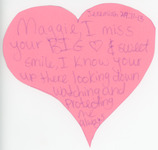 Maggie, I miss
your BIG ♡ & sweet
smile, I know your
up there looking down
watching and
protecting
me